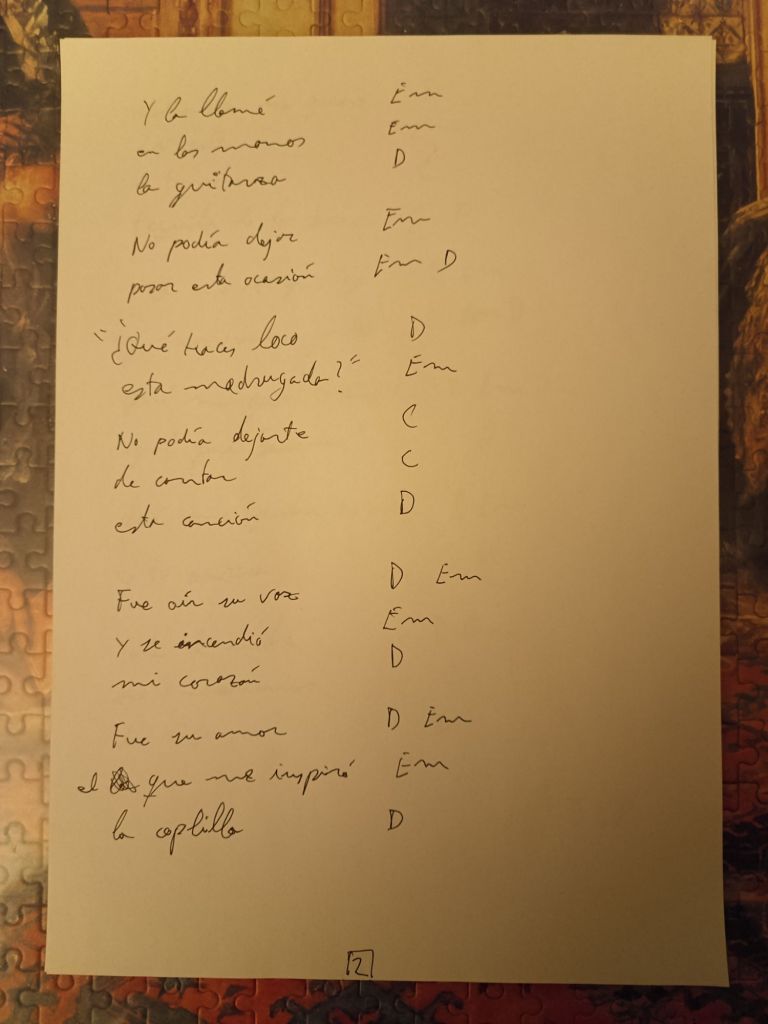 Y la llamé Em
en las manos Em
la guitarra D
No podía dejar Em
pasar esta ocasión Em D
"¿Qué haces loco D
esta madrugada?" Em
No podía dejarte C
de cantar C
esta canción D
Fue oír su voz D Em
Y se incendió Em
mi corazón D
Fue su amor D Em
el que me inspiró Em
la coplilla D
2